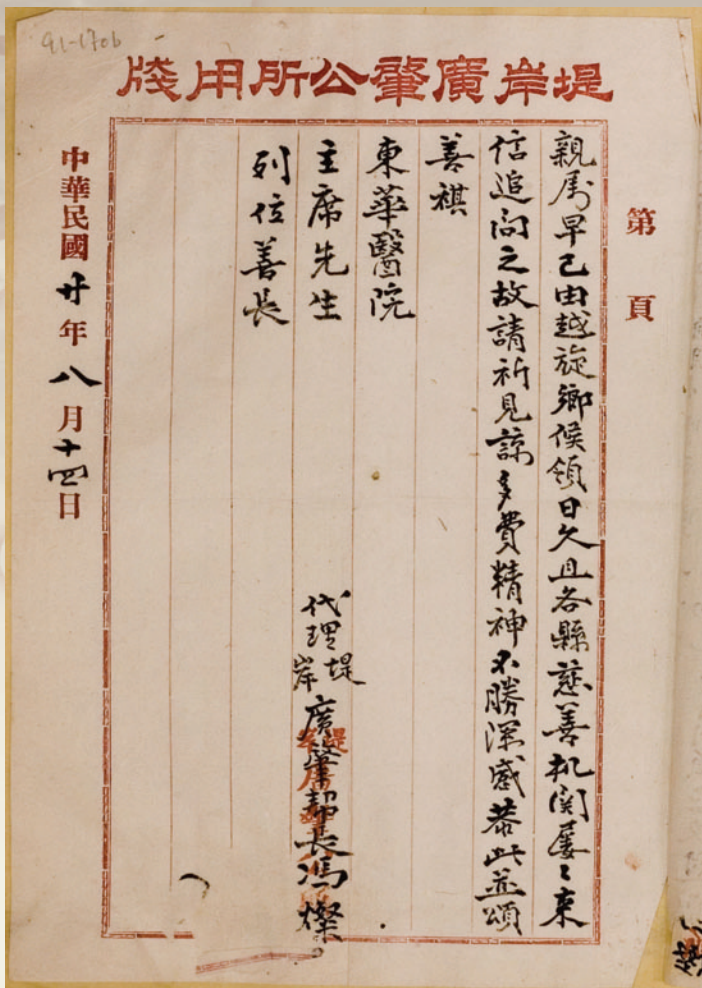 91-170b
堤岸廣肇公所用牋
第 頁
親屬早已由越旋鄉候領日久且各縣慈善机関屡〻来
信追问之故請祈見諒多費精神不勝深感恭此並頌
善祺
東華醫院
主席先生
列位善長
代理堤岸廣肇幫長馮燦
中華民國廿年八月十四日